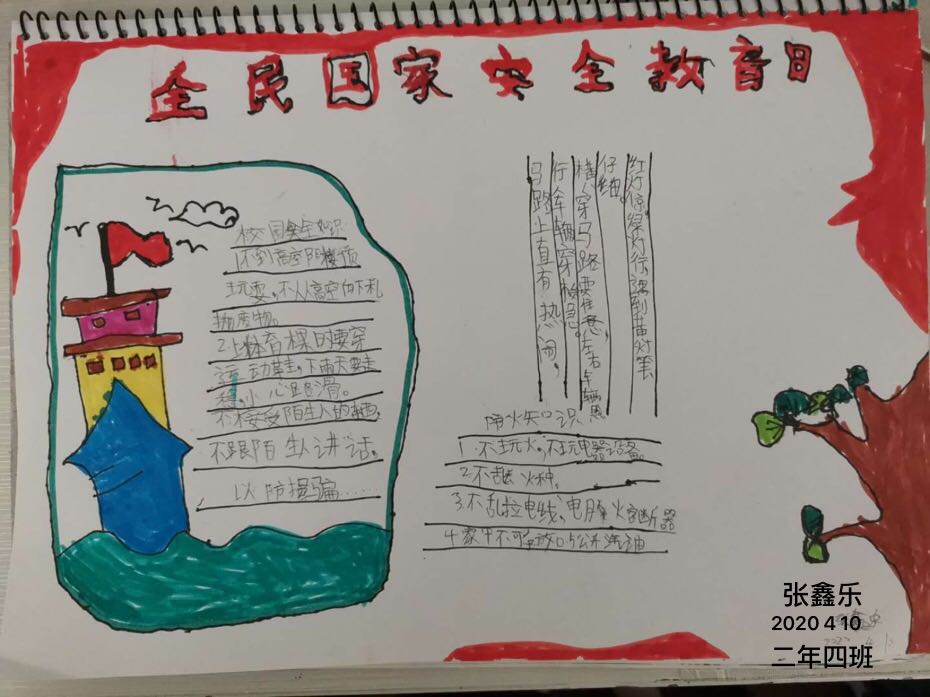 全民国家安全教育日
校园安全知识
1不到高空阳楼顶
玩耍,不从高空向下扎
扔废物。
2.上体育课时要穿
运动鞋,下雨天要走
稳,小心路滑。
不接受陌生人的
不跟陌生人讲话。
以防摸骗……
马路上真有热闹,
行车辆穿梭急。
横穿马路要注意,左右车辆
仔细。
红灯停绿灯行遇到黄灯等
防火知识
1.不玩火,不玩电器设备。
2.不乱火种。
3.不乱拉电线,电用火断器
4家中不可放0.5公斤汽油
张鑫乐
2020 4 10
二年四班